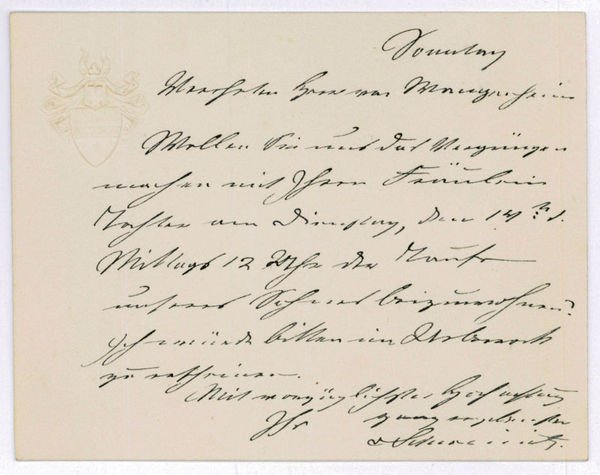 Sonntag
Verehrter Herr von Wangenheim
Wollen Sie uns das Vergnügen
machen mit Ihrem Fräulein
Tochter am Dienstag, den 14ten d.
Mittags 12 Uhr der Taufe
unseres Sohnes beizuwohnen?
Ich würde bitten im Ueberrock
zu erscheinen.
Mit vorzüglichster Hochachtung
Ihr ganz ergebenster